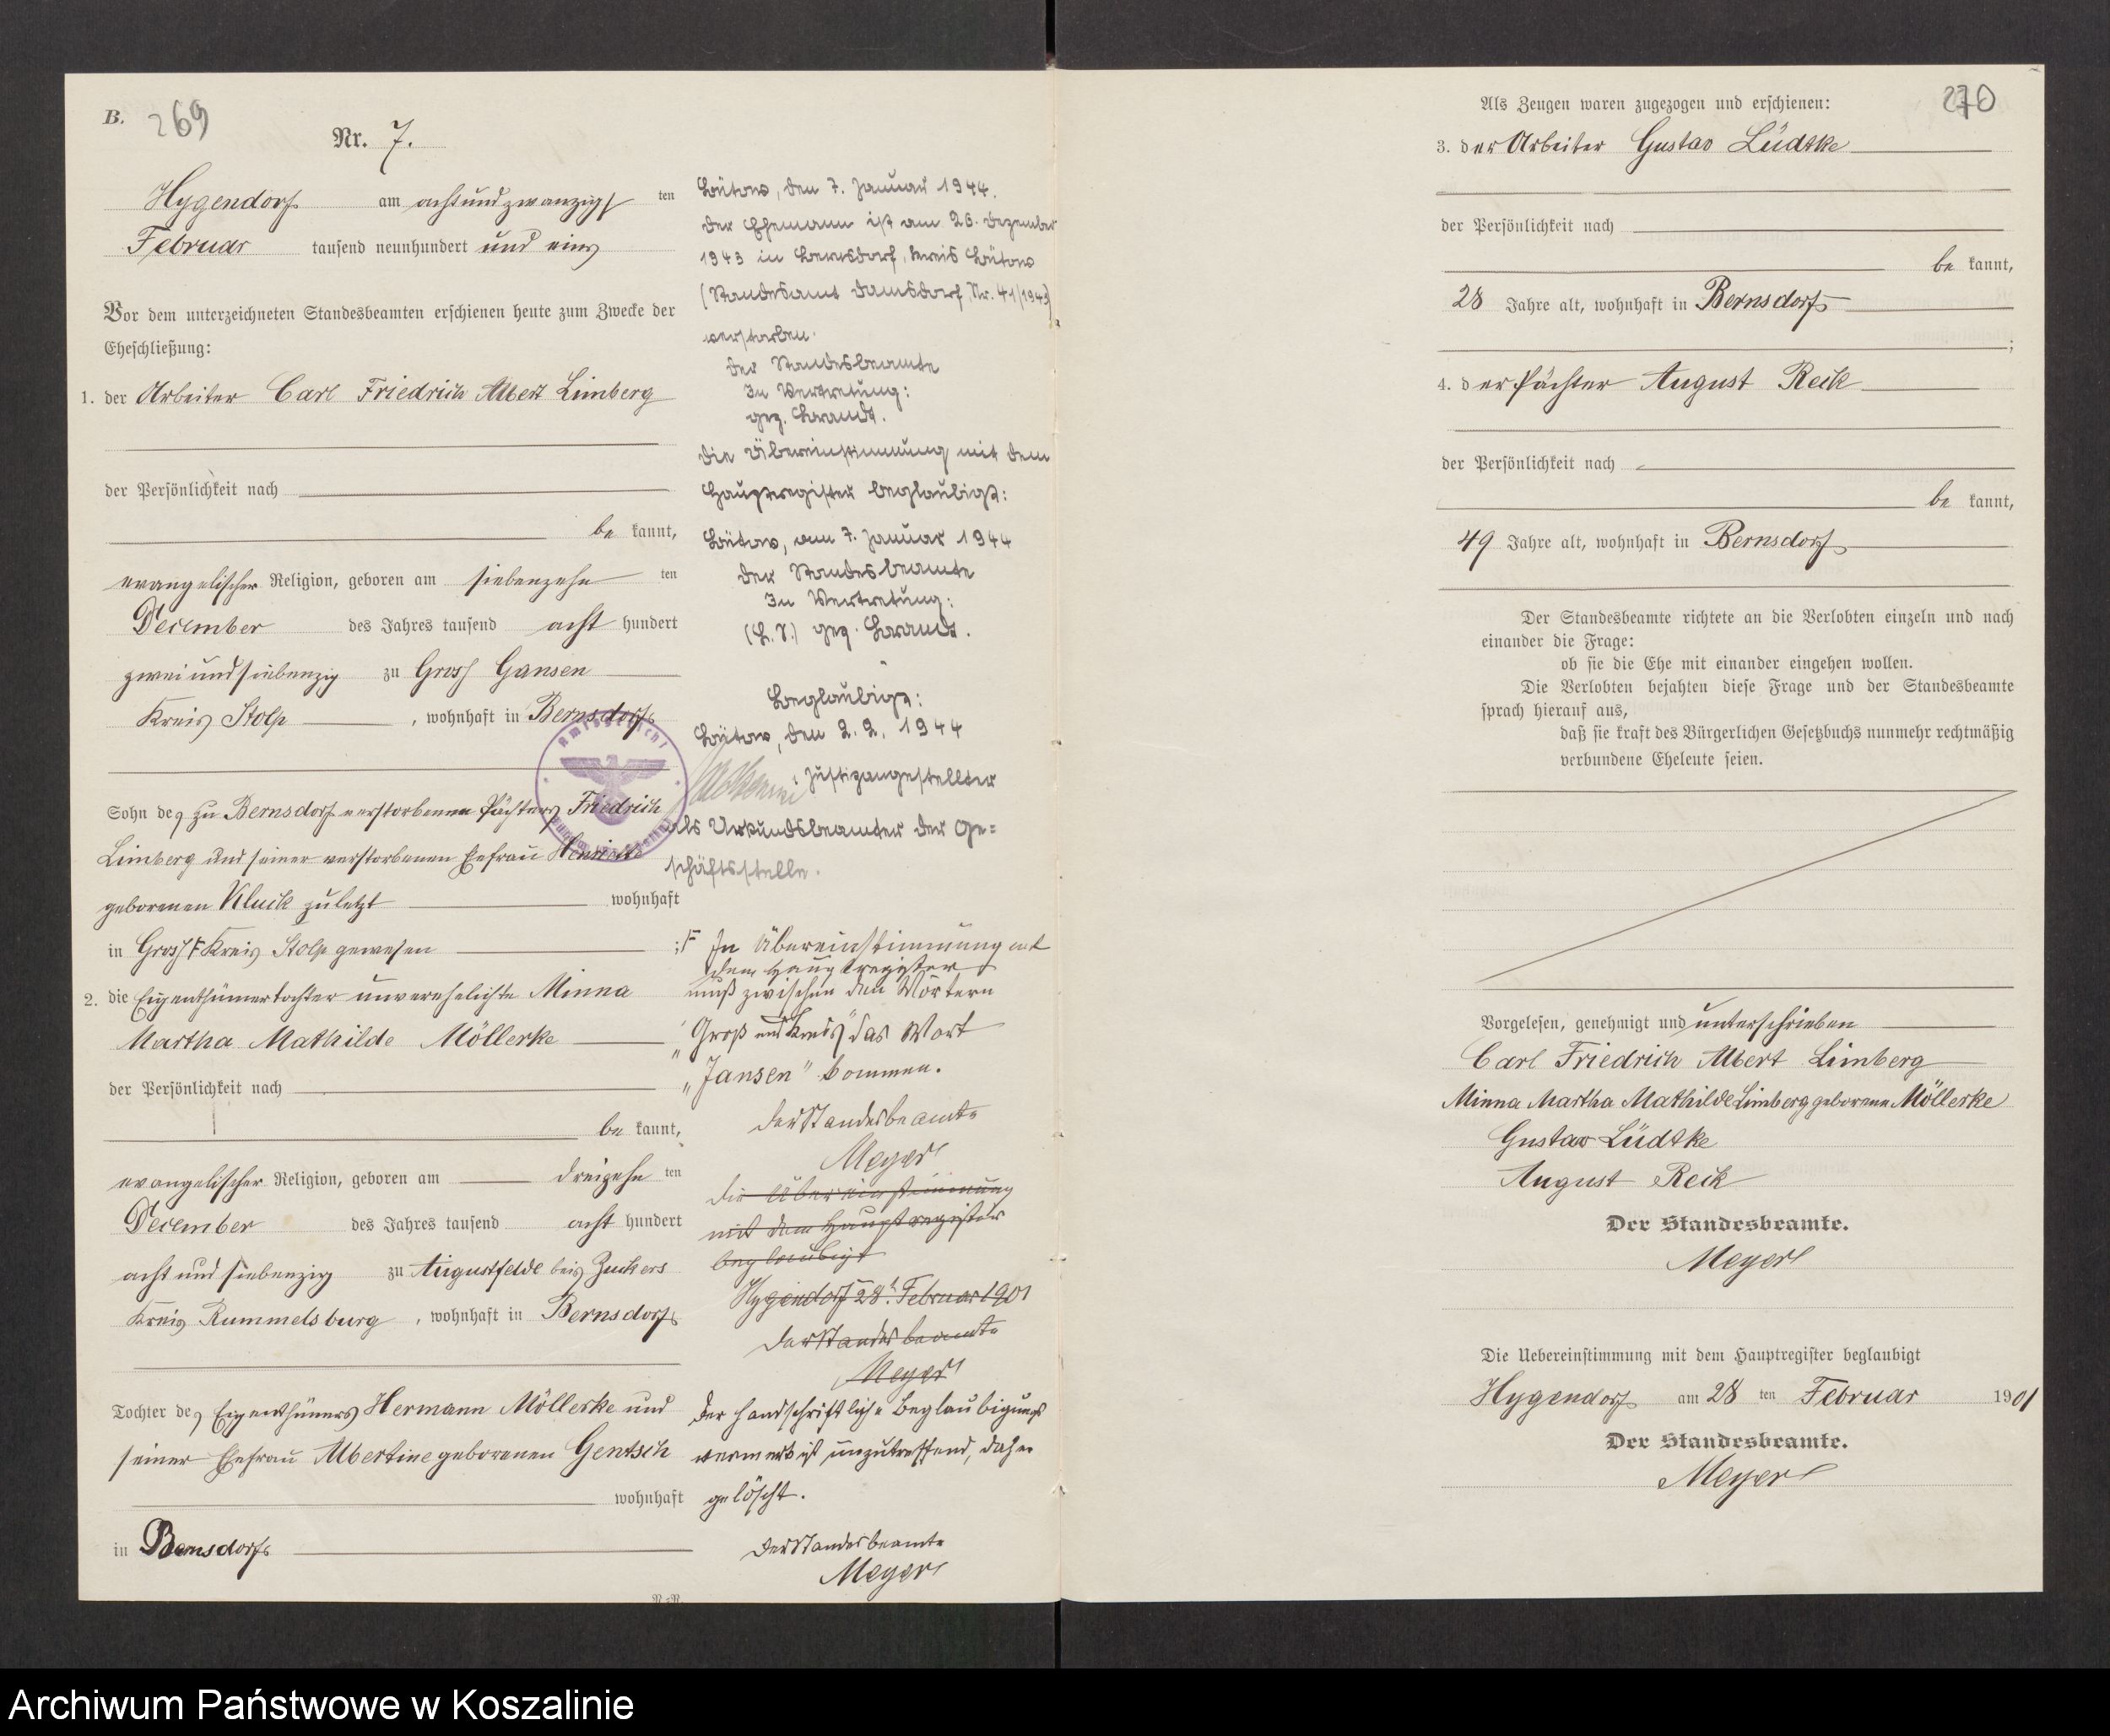 B. 269
Nr. 7.
Hygendorf am achtundzwanzigs ten
Februar tausend neunhundert und eins
Vor dem unterzeichneten Standesbeamten erschienen heute zum Zwecke der
Eheschließung:
1. der Arbeiter Carl Friedrich Albert Limberg
der Persönlichkeit nach
be kannt,
evangelischer Religion, geboren am siebenzehn ten
December des Jahres tausend acht hundert
zweiundsiebenzig zu Gross Gansen
Kreis Stolp, wohnhaft in Bernsdorf
Sohn des zu Bernsdorf verstorbenen Pächters Friedrich
Limberg und seiner verstorbenen Ehefrau Henriette
geborenen Kluck zuletzt wohnhaft
in Gross F Kreis Stolp gewesen
2. die Eigenthümertochter unverehelichte Minna
Martha Mathilde Möllerke
der Persönlichkeit nach
be kannt,
evangelischer Religion, geboren am dreizehn ten
December des Jahres tausend acht hundert
acht und siebenzig zu Augustfelde bei Zuckers
Kreis Rummelsburg, wohnhaft in Bernsdorf
Tochter des Eigenthümers Hermann Möllerke und
seiner Ehefrau Albertine geborenen Gentsch
wohnhaft
in Bernsdorf
Bütow, den 7. Januar 1944.
Der Ehemann ist am 26. Dezember
1943 in Bernsdorf, Kreis Bütow
(Standesamt Damsdorf Nr. 41/1943)
verstorben.
Der Standesbeamte
In Vertretung:
gez. Brandt.
Die Übereinstimmung mit dem
Hauptregister beglaubigt:
Bütow, am 7. Januar 1944
Der Standesbeamte
In Vertretung:
(L. S.) gez. Brandt.
Beglaubigt:
Bütow, den 2. 2. 1944
Justizangestellter
als Urkundsbeamter der Ge=
schäftsstelle.
:F In Übereinstimmung mit
dem Hauptregister
muß zwischen den Wörtern
„Groß und Kreis" das Wort
„Jansen" kommen.
Der Standesbeamte
Meyer
Die Übereinstimmung
mit dem Hauptregister
beglaubigt
Hygendorf 28t. Februar 1901
Der Standesbeamte
Meyer
Der handschriftliche Beglaubigungs
vermerk ist unzutreffend, daher
gelöscht.
Der Standesbeamte
Meyer
270
Als Zeugen waren zugezogen und erschienen:
3. der Arbeiter Gustav Lüdtke
der Persönlichkeit nach
be kannt,
28 Jahre alt, wohnhaft in Bernsdorf
;
4. der Pächter August Reik
der Persönlichkeit nach
be kannt,
49 Jahre alt, wohnhaft in Bernsdorf
Der Standesbeamte richtete an die Verlobten einzeln und nach
einander die Frage:
ob sie die Ehe mit einander eingehen wollen.
Die Verlobten bejahten diese Frage und der Standesbeamte
sprach hierauf aus,
daß sie kraft des Bürgerlichen Gesetzbuchs nunmehr rechtmäßig
verbundene Eheleute seien.
Vorgelesen, genehmigt und unterschrieben
Carl Friedrich Albert Limberg
Minna Martha Mathilde Limberg geborene Möllerke
Gustav Lüdtke
August Reik
Der Standesbeamte.
Meyer
Die Uebereinstimmung mit dem Hauptregister beglaubigt
Hygendorf am 28 ten Februar 1901
Der Standesbeamte.
Meyer
Archiwum Państwowe w Koszalinie